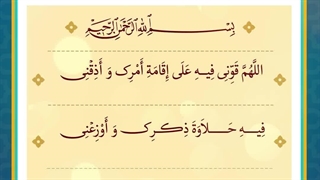 بِسْمِ اللَّهِ الرَّحْمَنِ الرَّحِيمِ
اللَّهُمَّ قَوِّنِی فِیهِ عَلَی إِقَامَةِ أَمْرِکَ وَ أَذِقْنِی
فِیهِ حَلاَوَةَ ذِکْرِکَ وَ أَوْزِعْنِی